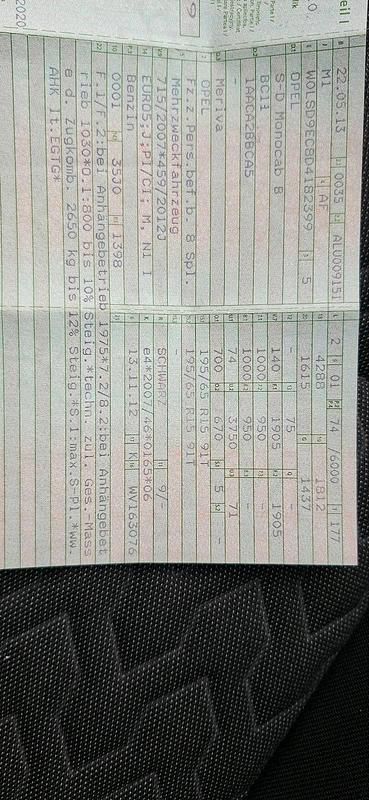 eil I
22.05.13 0035 ALU009151
M1 AF
W0LSD9EC8D4182399 5
OPEL
S-D Monocab B
BC11
1AAGA2BBCA5
-
Meriva
OPEL
Fz.z.Pers.bef.b. 8 Spl.
Mehrzweckfahrzeug
715/2007*459/2012J
EURO5;J;PI/CI; M, N1 I
Benzin
0001 35J0 1398
2 01 74 /6000 177
4288 1812
1615 1437
- 75 -
140 1905 1905
1000 950 -
1000 950 -
74 3750 71
700 670 5 -
195/65 R15 91T
195/65 R15 91T
-
SCHWARZ 9/-
e4*2007/46*0165*06
13.11.12 K WV163076
F.1/F.2:bei Anhängebetrieb 1975*7.2/8.2:bei Anhängebet
rieb 1030*O.1:800 bis 10% Steig.*techn. zul. Ges.-Mass
e d. Zugkomb. 2650 kg bis 12% Steig.*S.1:max.S-Pl.*ww.
AHK lt.EGTG*
2020